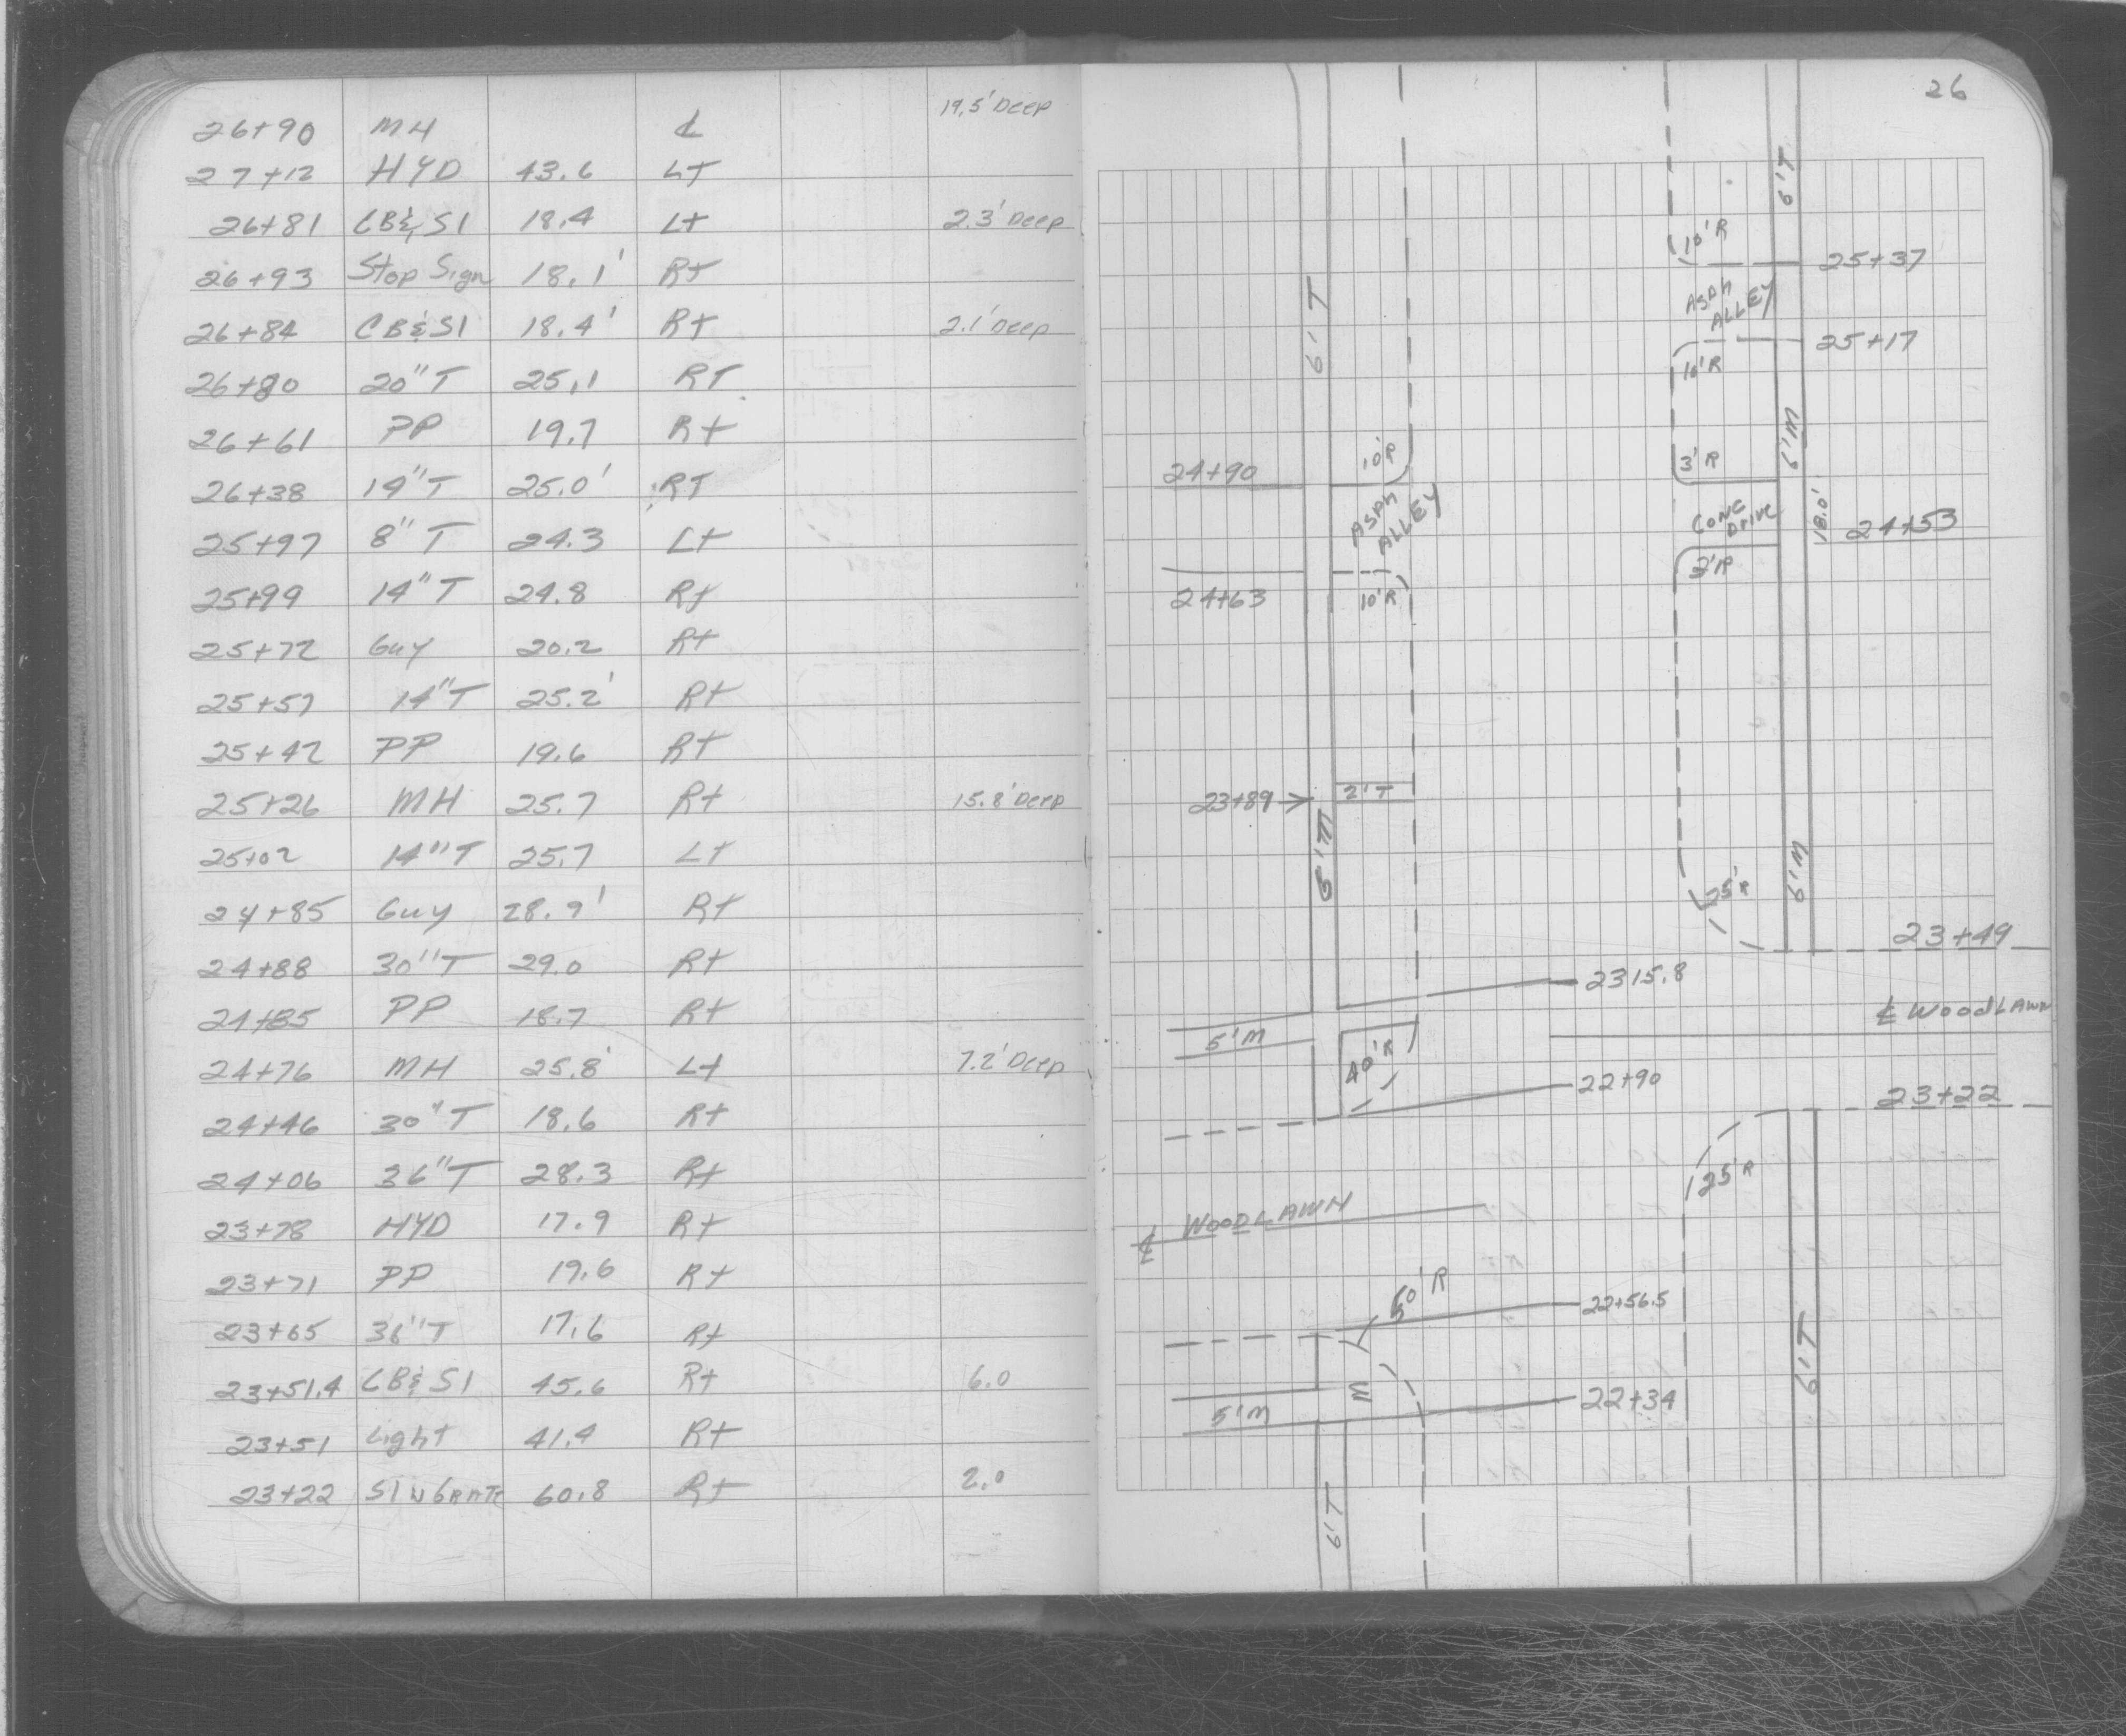 26+90 MH ℄ 19.5' Deep
27+12 HYD 43.6 LT
26+81 CB&SI 18.4 Lt 2.3' Deep
26+93 Stop Sign 18.1' Rt
26+84 CB&SI 18.4' Rt 2.1' Deep
26+80 20"T 25.1 RT
26+61 PP 19.7 Rt
26+38 14"T 25.0' RT
25+97 8"T 24.3 Lt
25+99 14"T 24.8 Rt
25+72 Guy 20.2 Rt
25+57 14"T 25.2' Rt
25+42 PP 19.6 Rt
25+26 MH 25.7 Rt 15.8' Deep
25+02 14"T 25.7 Lt
24+85 Guy 28.9' Rt
24+88 30"T 29.0 Rt
24+85 PP 18.7 Rt
24+76 MH 25.8' Lt 7.2' Deep
24+46 30"T 18.6 Rt
24+06 36"T 28.3 Rt
23+78 HYD 17.9 Rt
23+71 PP 19.6 Rt
23+65 36"T 17.6 Rt
23+51.4 CB&SI 45.6 Rt 6.0
23+51 Light 41.4 Rt
23+22 SI 60.8 Rt 2.0
26
6'T
10'R
25+37
6'T
ASPH
ALLEY
25+17
10'R
6'M
24+90
10'R
3'R
ASPH
ALLEY
CONC
Drive
18.0'
24+53
3'R
24+63
10'R
23+89
2'T
6'M
6'M
25'R
23+49
2315.8
℄ WOODLAWN
5'M
40'R
22+90
23+22
25'R
℄ WOODLAWN
50'R
22+56.5
6'T
M
5'M
22+34
6'T